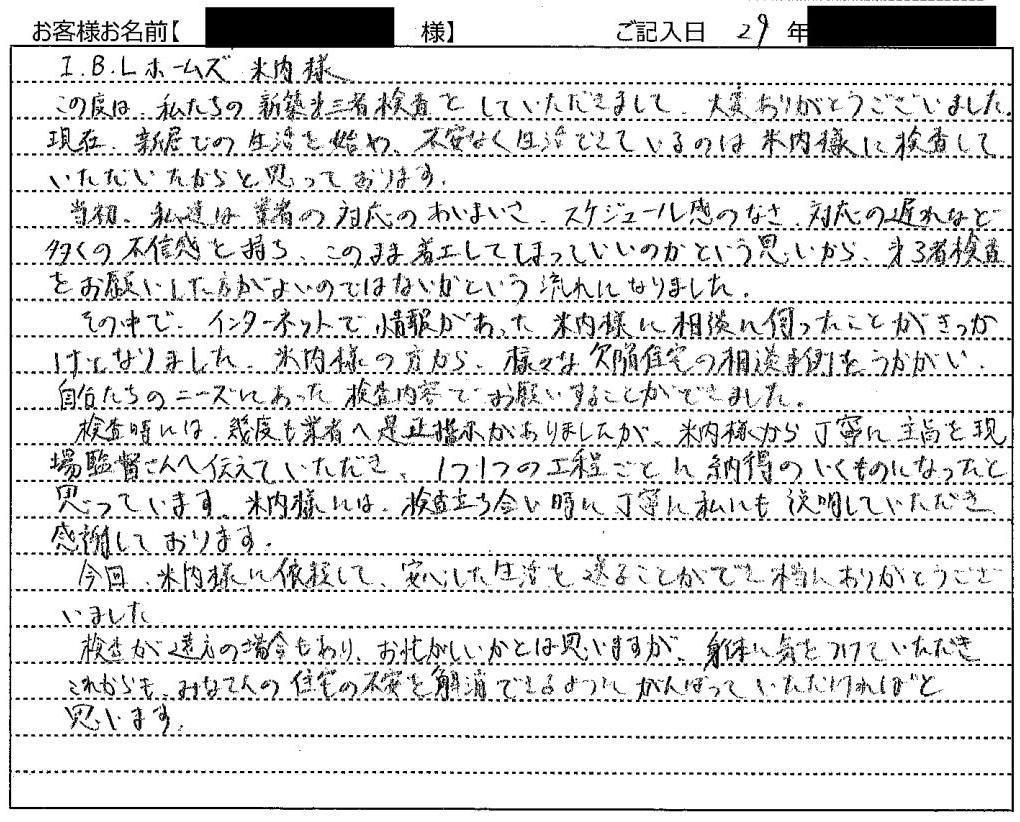 お客様お名前【 様】 ご記入日 29年
I.B.Lホームズ 米内様
この度は、私たちの新築第三者検査をしていただきまして、大変ありがとうございました。
現在、新居での生活を始め、不安なく生活できているのは米内様に検査して
いただいたからと思っております。
当初、私達は業者の対応のあいまいさ、スケジュール感のなさ、対応の遅れなど
多くの不信感を持ち、このまま着工してしまっていいのかという思いから、第3者検査
をお願いした方がよいのではないかという流れになりました。
その中で、インターネットで情報があった米内様に相談に伺ったことがきっか
けとなりました。米内様の方から、様々な欠陥住宅の相談事例をうかがい、
自分たちのニーズにあった検査内容でお願いすることができました。
検査時には、幾度も業者へ是正指示がありましたが、米内様から丁寧に主旨を現
場監督さんへ伝えていただき、1つ1つの工程ごとに納得のいくものになったと
思っています。米内様には、検査立ち会い時に丁寧に私にも説明していただき
感謝しております。
今回、米内様に依頼して、安心した生活を送ることができ本当にありがとうござ
いました
検査が遠方の場合もあり、お忙がしいかとは思いますが、身体に気をつけていただき
これからも、みなさんの住宅の不安を解消できるようにがんばっていただければと
思います。